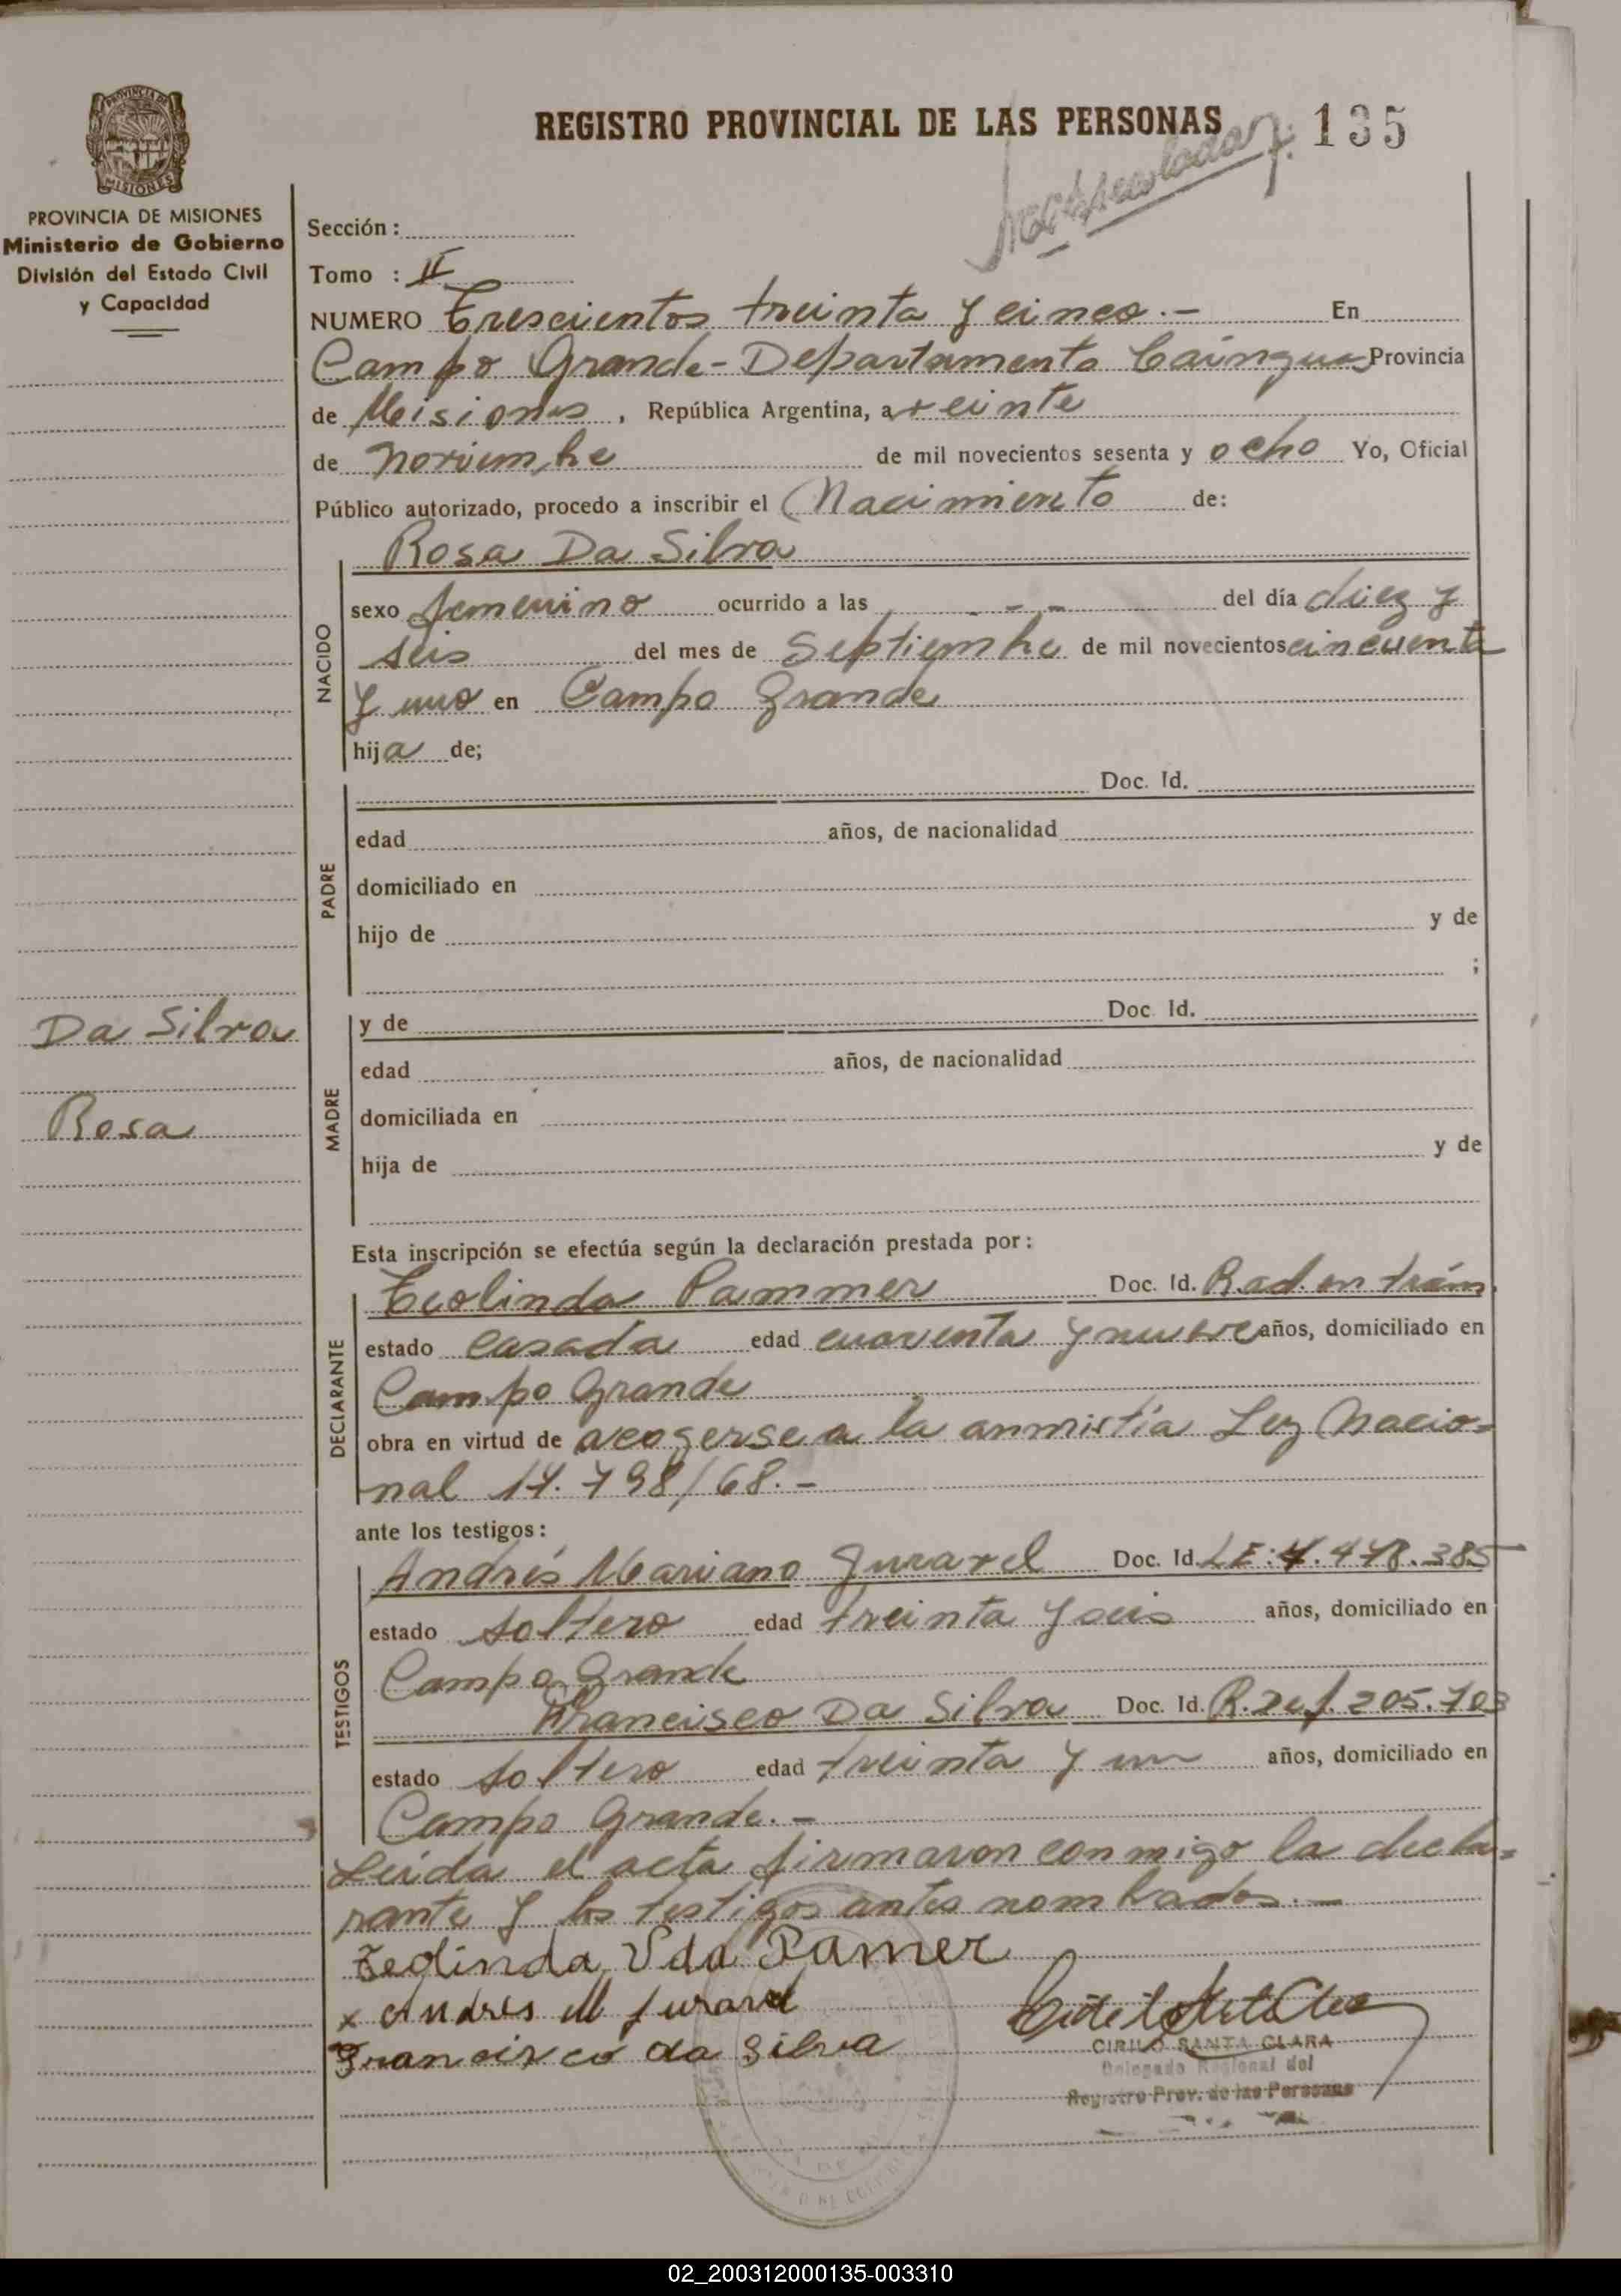 REGISTRO PROVINCIAL DE LAS PERSONAS
135
PROVINCIA DE MISIONES
Ministerio de Gobierno
División del Estado Civil
y Capacidad
Sección :
Tomo : II
NUMERO Trescientos treinta y cinco.- En
Campo Grande-Departamento Cainguas Provincia
de Misiones, República Argentina, a veinte
de noviembre de mil novecientos sesenta y ocho Yo, Oficial
Público autorizado, procedo a inscribir el Nacimiento de:
Rosa Da Silva
NACIDO
sexo femenino ocurrido a las - - del día diez y
seis del mes de Septiembre de mil novecientos cincuenta
y uno en Campo Grande
hija de;
PADRE
Doc. Id.
edad años, de nacionalidad
domiciliado en
hijo de y de
;
Da Silva
Rosa
MADRE
y de Doc. Id.
edad años, de nacionalidad
domiciliada en
hija de y de
Esta inscripción se efectúa según la declaración prestada por:
DECLARANTE
Teolinda Pammer Doc. Id. Rad. en trám.
estado casada edad cuarenta y nueve años, domiciliado en
Campo Grande
obra en virtud de acogerse a la amnistía Ley Nacio-
nal 17.798/68.-
ante los testigos:
TESTIGOS
Andrés Mariano Doc. Id. LE: 7.478.385
estado soltero edad treinta y seis años, domiciliado en
Campo Grande
Francisco Da Silva Doc. Id. 205.703
estado soltero edad treinta y un años, domiciliado en
Campo Grande.-
Leída el acta firmaron conmigo la decla-
rante y los testigos antes nombrados.-
Teolinda Vda Pamer
x Andres M
Francisco da Silva
CIRILO SANTA CLARA
Delegado Regional del
Registro Prov. de las Personas
02_200312000135-003310